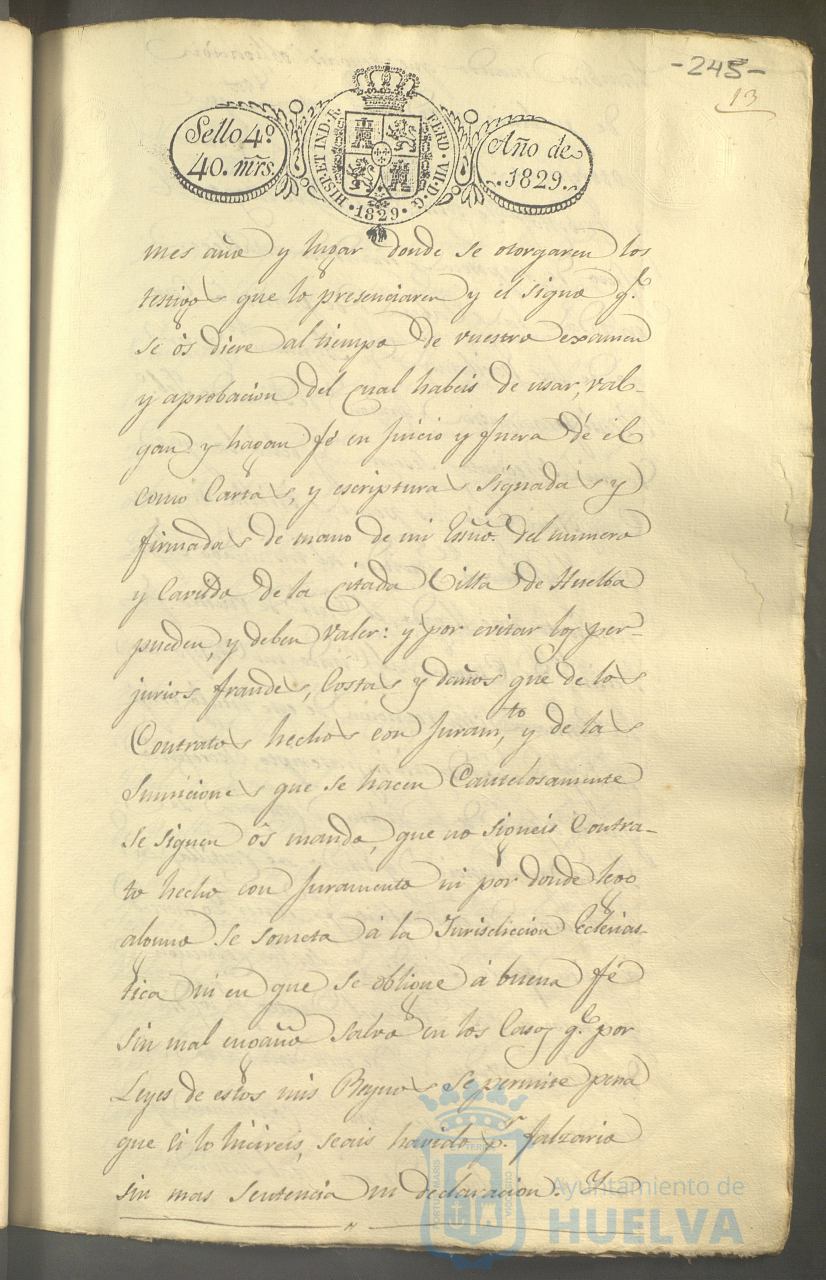 -245-
13
Sello 4º
40. mrs.
HISP. ET IND. R.
FERD · VII · D · G
· 1829 ·
Año de
1829.
mes año y lugar donde se otorgaren los
testigos que lo presenciaren y el signo q.e
se ós diere al tiempo de vuestro examen
y aprobacion del cual habeis de usar, val-
gan y hagan fé en juicio y fuera dé él
como Cartas, y escripturas signadas y
firmadas de mano de mi Essño. del numero
y Cavildo de la Citada Villa de Huelba
pueden, y deben valer: y por evitar los per-
jurios fraudes, Costas y daños que de los
Contratos hechos con Juram.to, y de las
Sumiciones que se hacen Cautelosamente
se siguen ós mando, que no signeis Contra-
to hecho con Juramento ni por donde lego
alguno se someta á la Jurisdiccion Eclesias-
tica ni en que se oblige á buena fé
sin mal engaño salvo en los Casos q.e por
Leyes de estos mis Reynos se permite pena
que si lo hicireis, seais havido p.r falzario
sin mas sentencia ni declaracion. Y
Ayuntamiento de
HUELVA